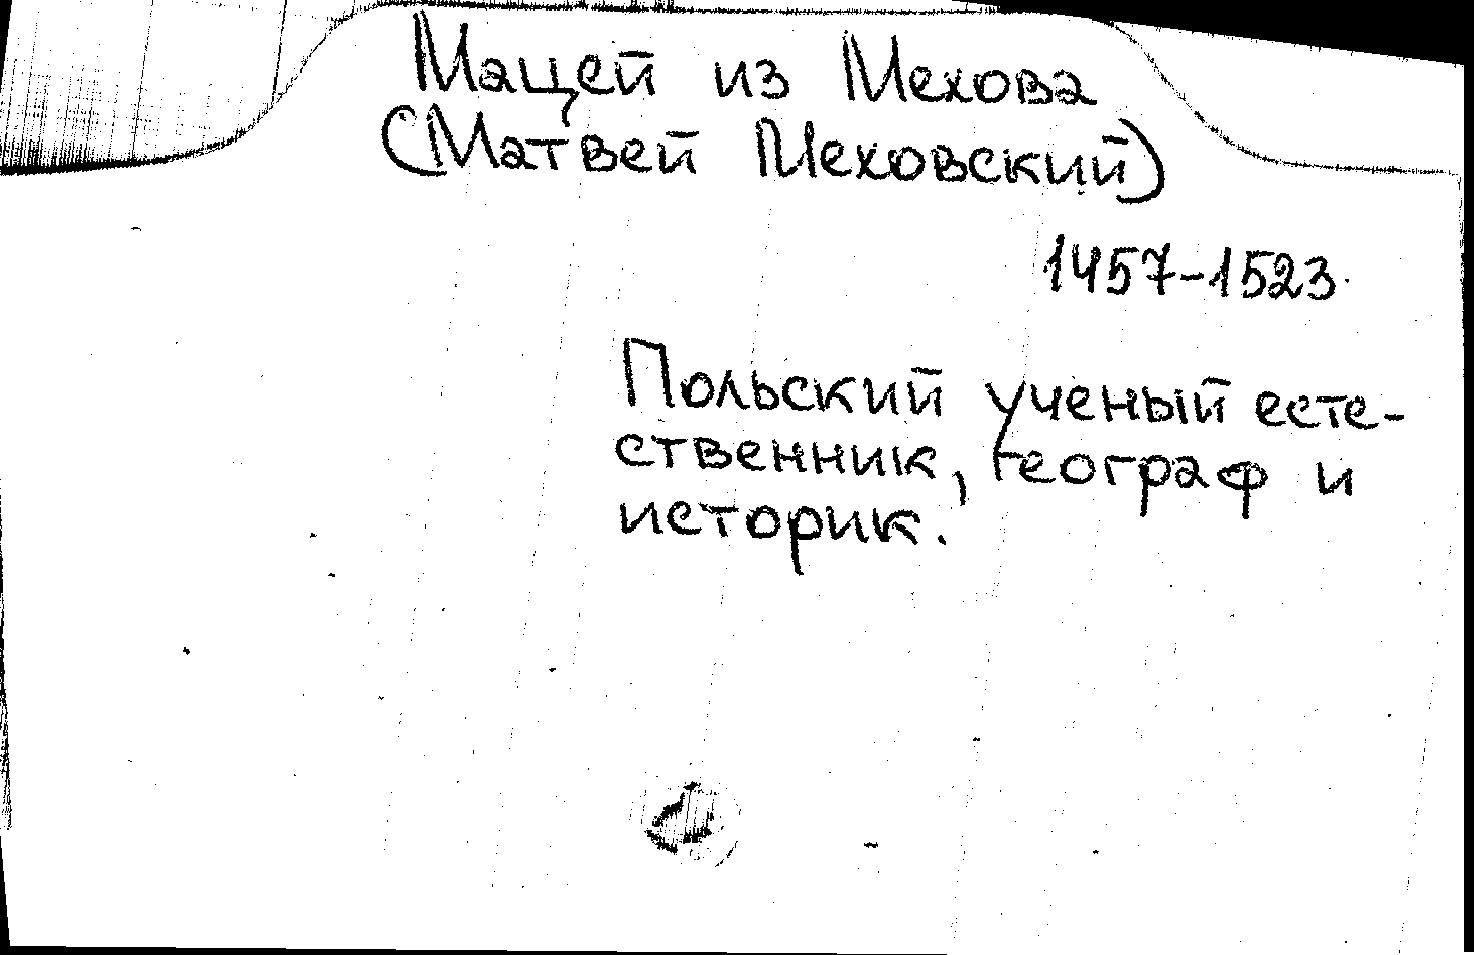 Мацей из Мехова
(Матвей Меховский)
1457-1523.
Польский ученый есте-
ственник, географ и
историк.